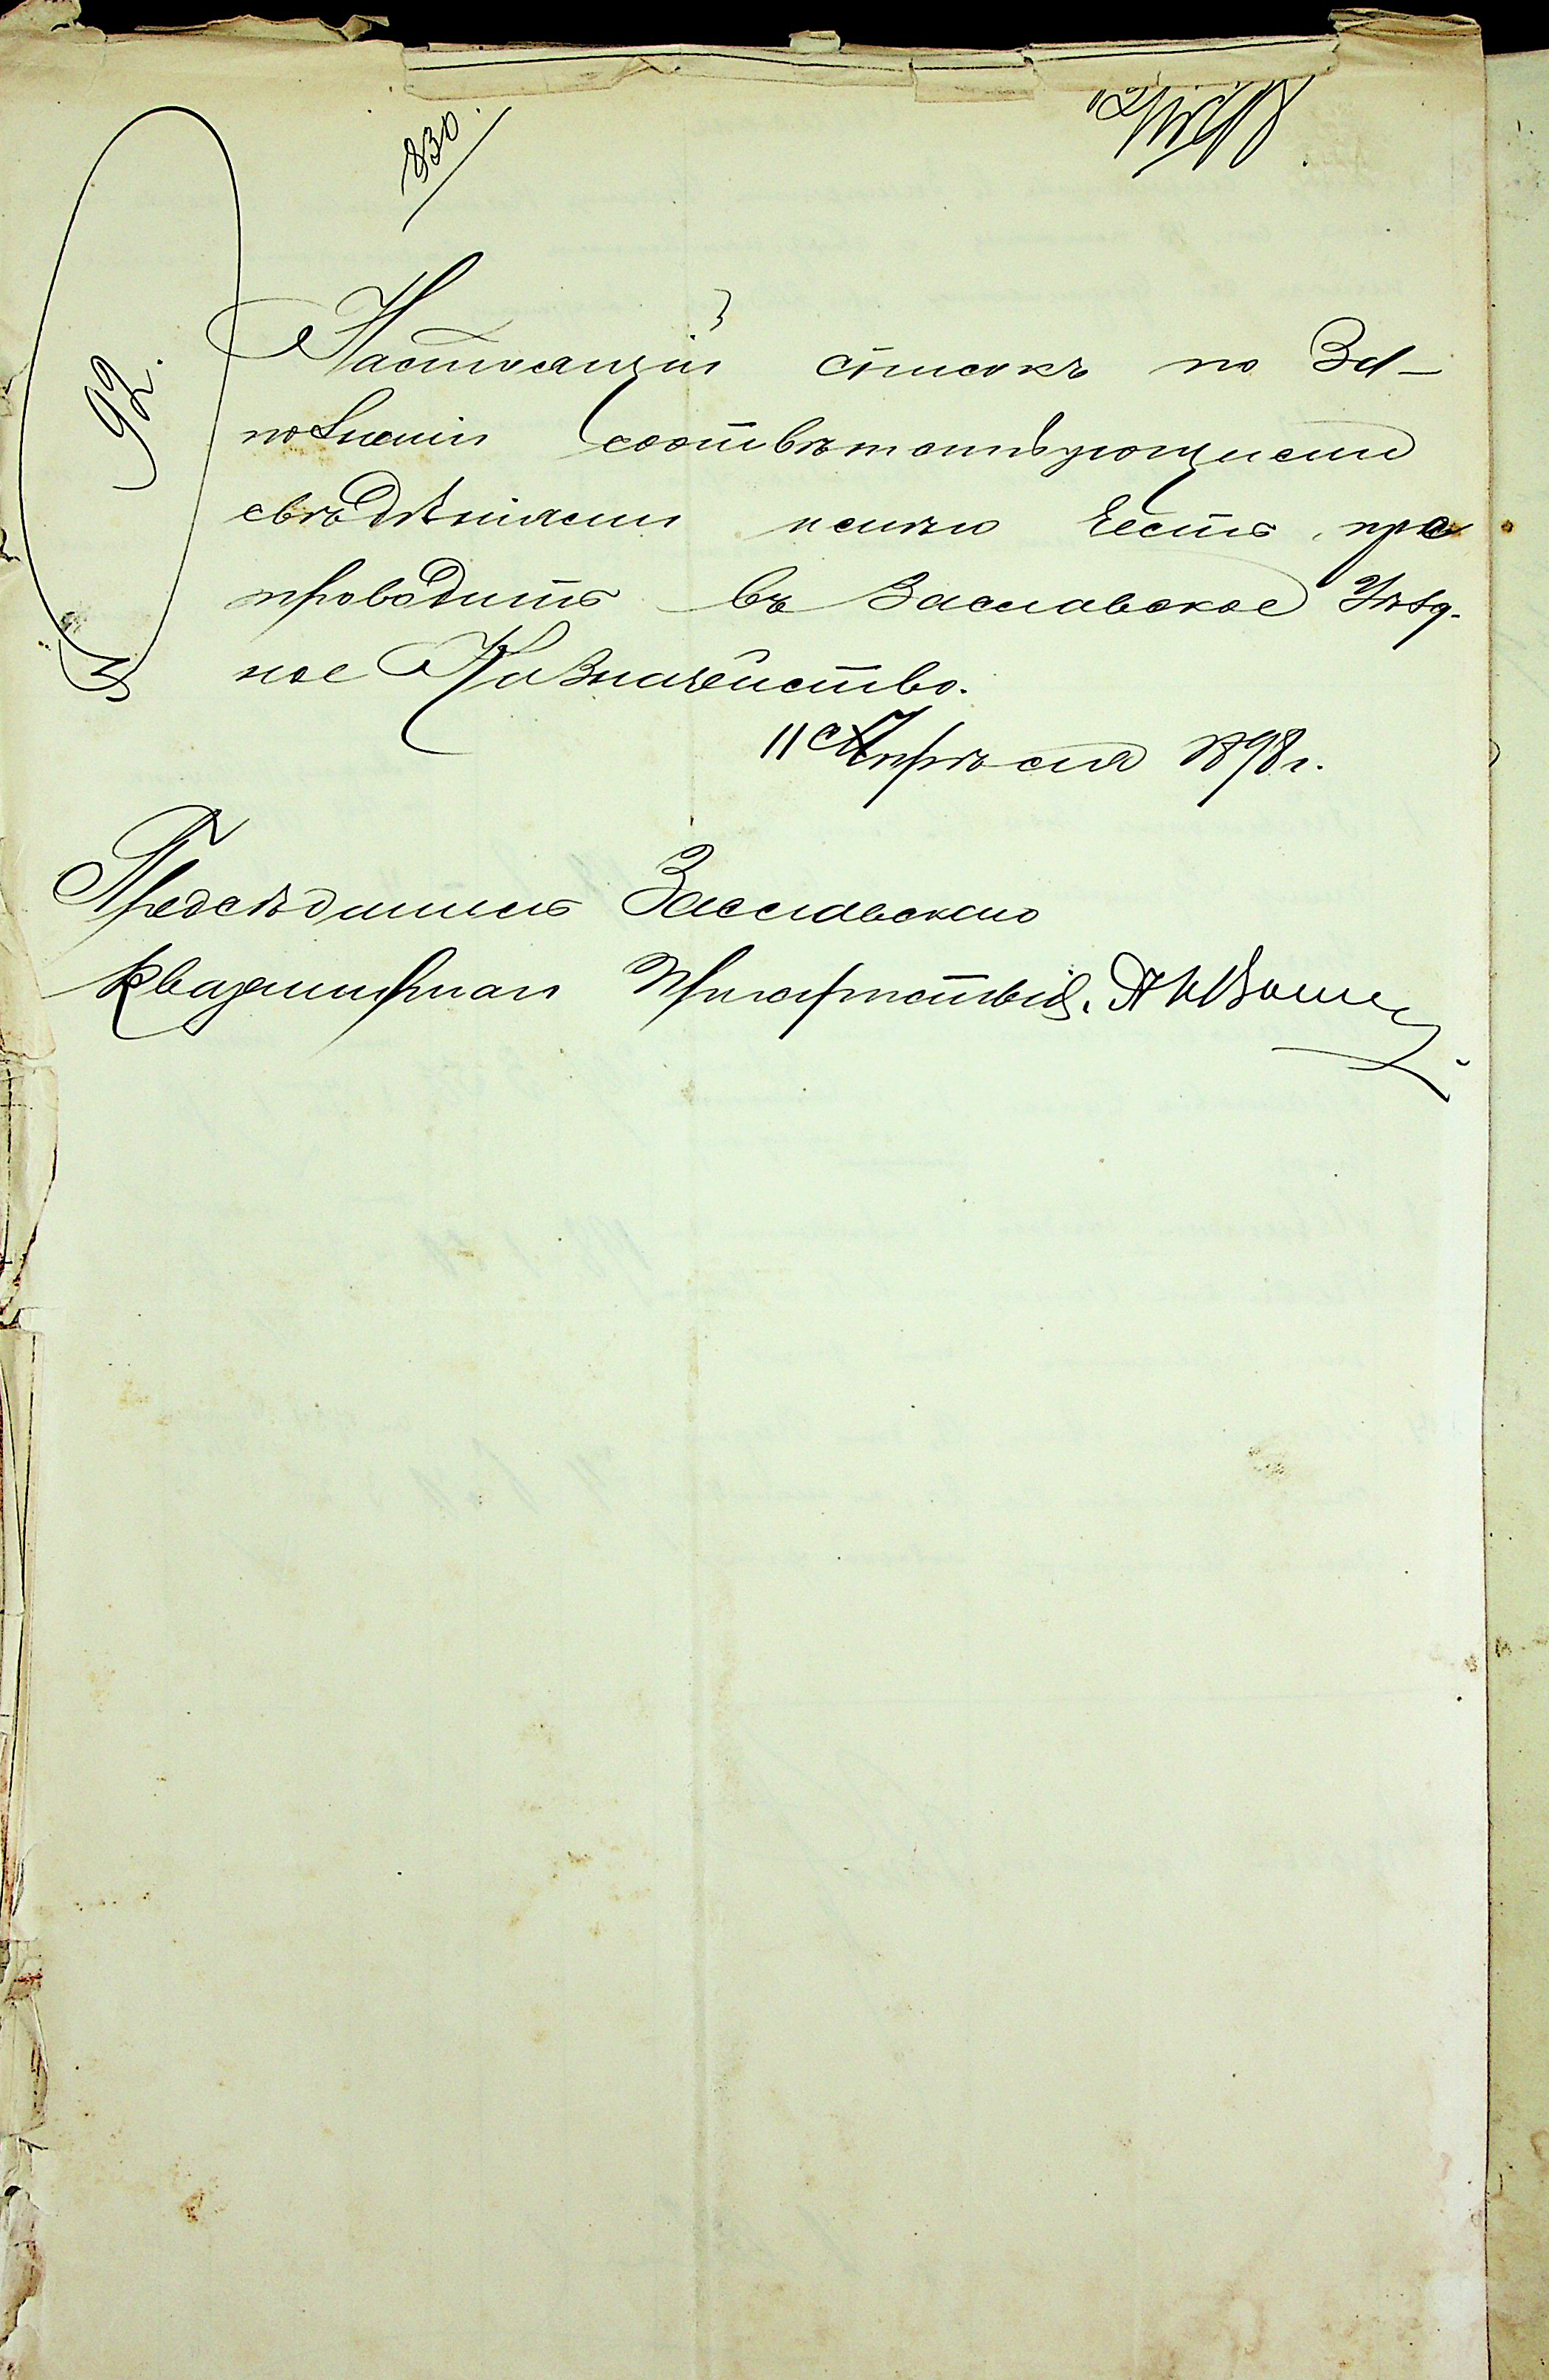 830.
92.
Настоящій списокъ по За-
полненіи соотвѣтствующими
свѣдѣніями имѣю честь пре
проводить въ Заславское Уѣзд-
ное Казначейство.
11 Апрѣля 1898 г.
Предсѣдатель Заславскаго
Квартирнаго Присутствія.